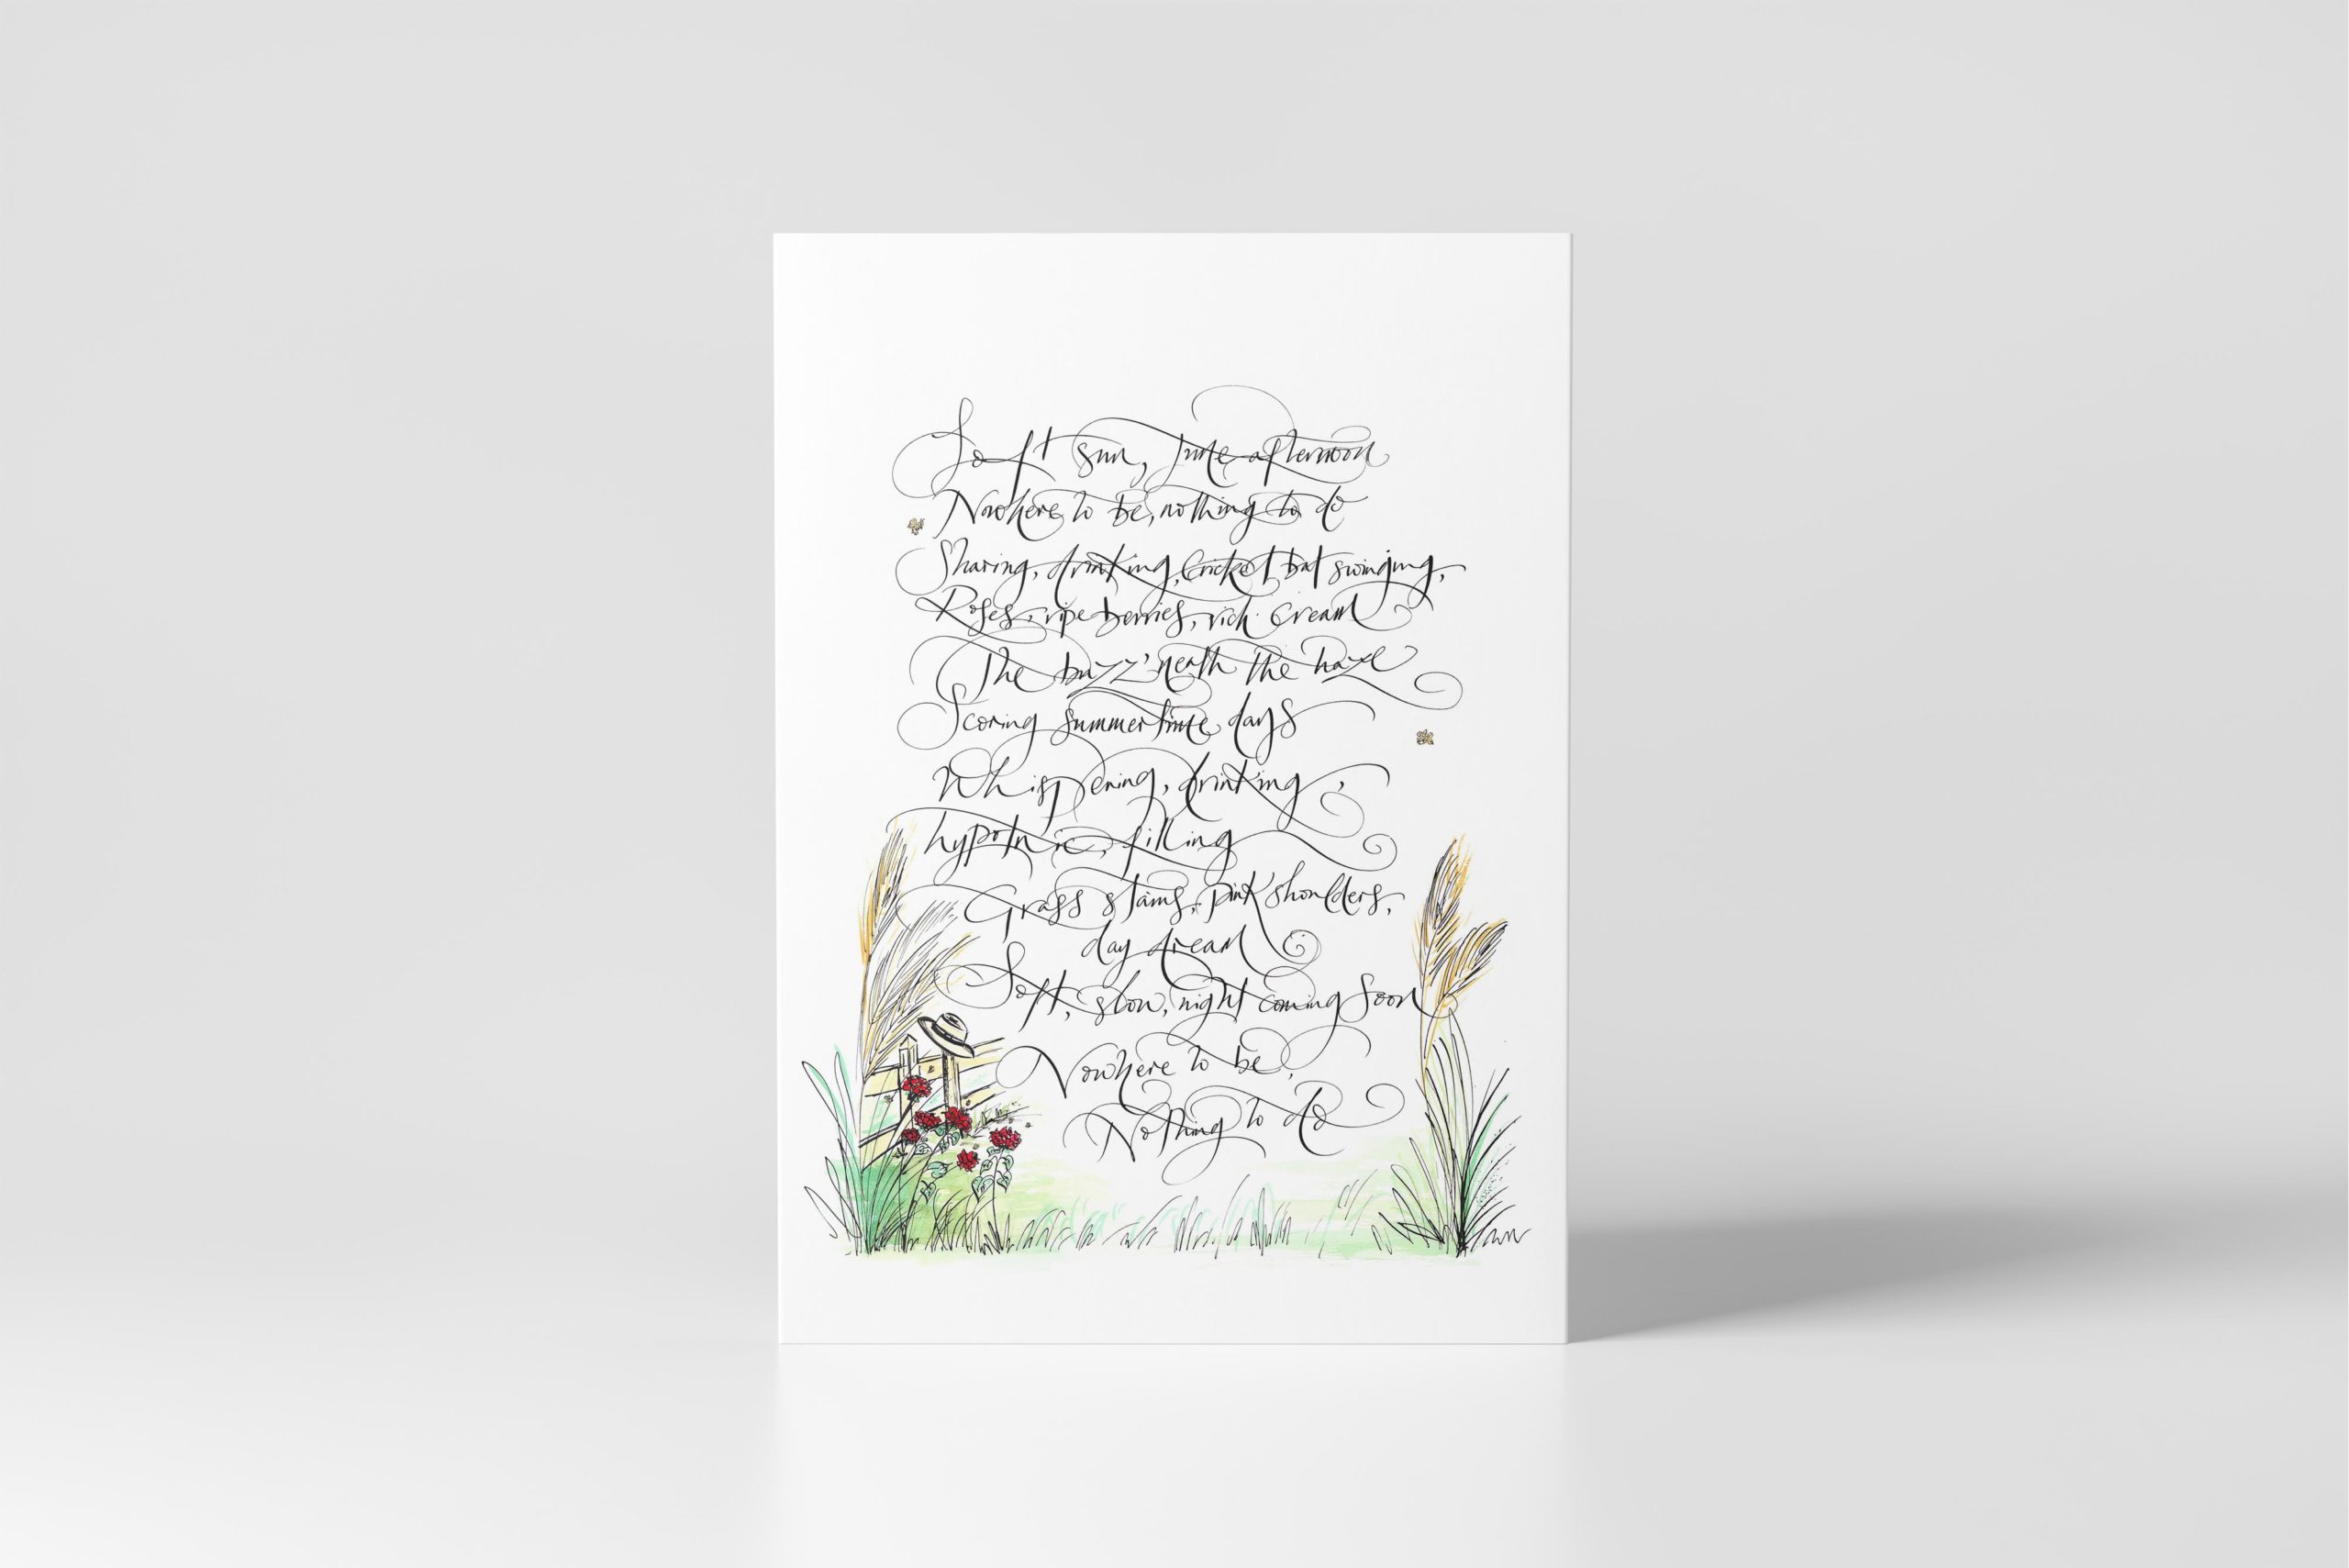 Soft sun, June afternoon
Nowhere to be, nothing to do
Sharing, drinking, Cricket bat swinging,
Roses, ripe berries, rich cream
The buzz 'neath the haze
Scoring summertime days
Whispering, drinking,
hypotnic, filling
Grass stains, pink shoulders,
day dream
Soft, slow, night coming soon
Nowhere to be,
Nothing to do